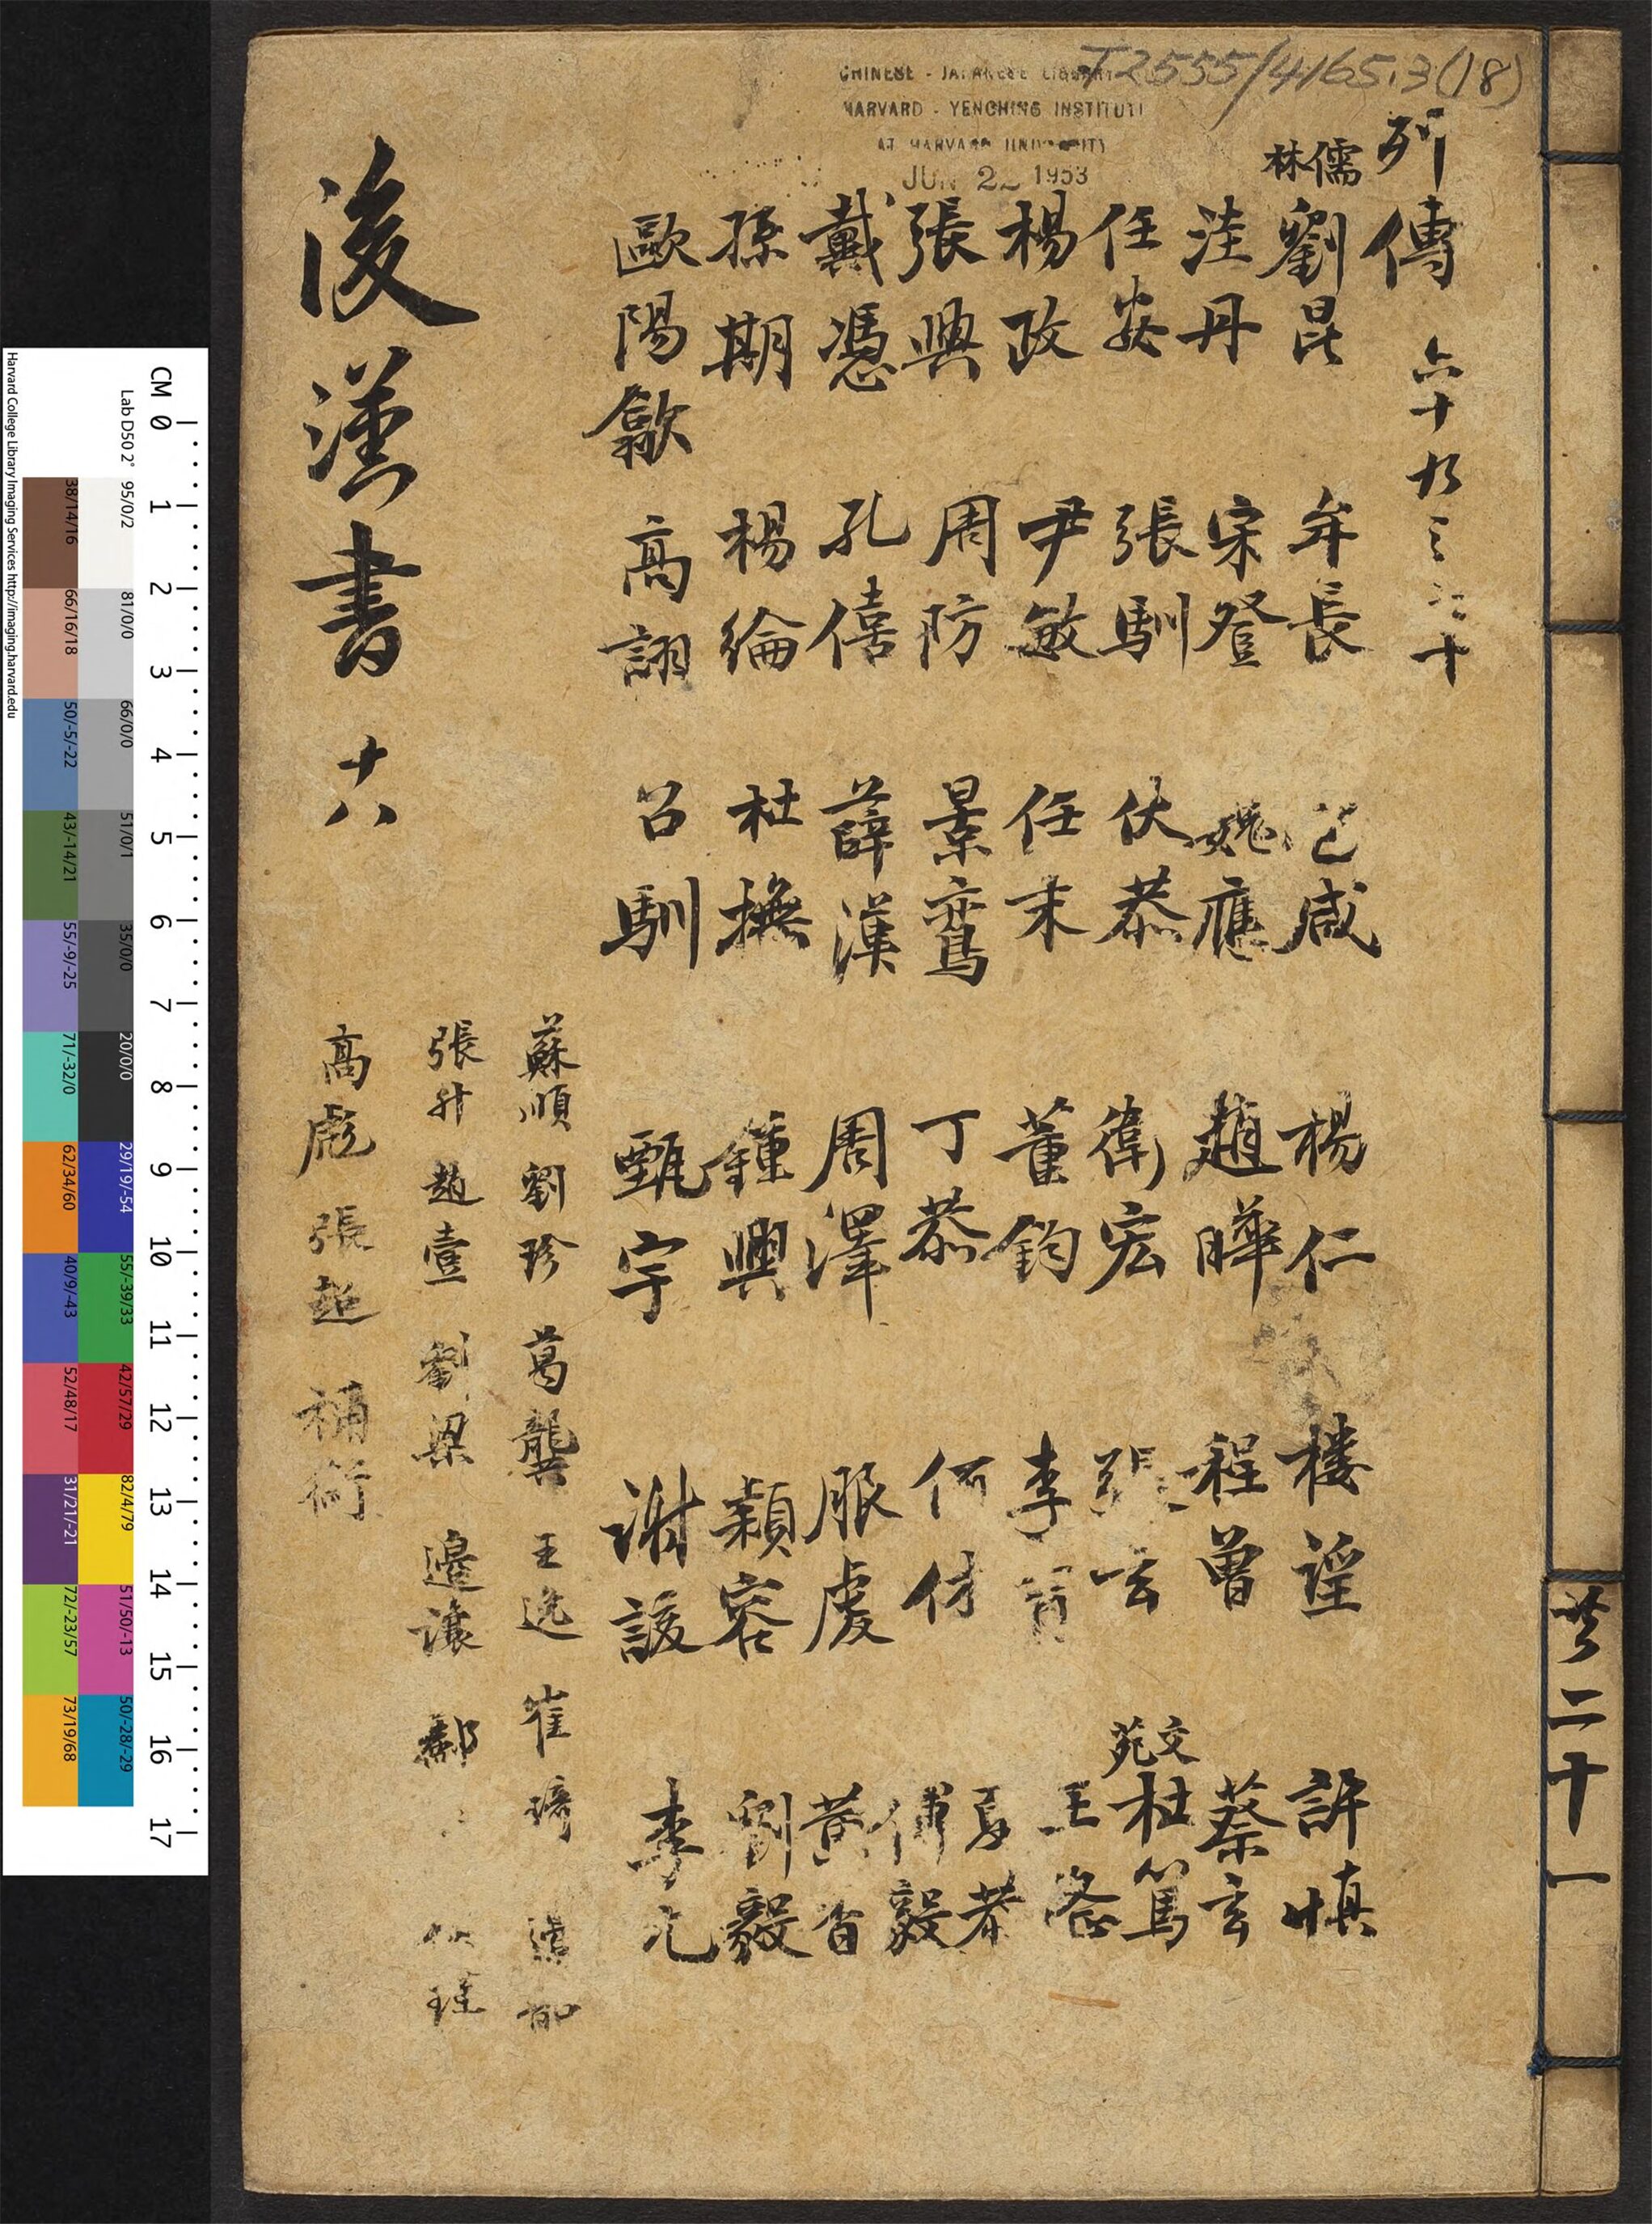 T2555/4165.3(18)
CHINESE - JAPANESE LIBRARY
HARVARD - YENCHING INSTITUTE
AT HARVARD UNIVERSITY
JUN 22 1953
列傳 六十九之七十
儒林
劉昆 洼丹 任安 楊政 張興 戴憑 孫期 歐陽歙
牟長 宋登 張馴 尹敏 周防 孔僖 楊倫 高詡
包咸 魏應 伏恭 任末 景鸞 薛漢 杜撫 召馴
楊仁 趙曄 衛宏 董鈞 丁恭 周澤 鍾興 甄宇
樓望 程曾 張玄 李育 何休 服虔 潁容 謝該
許慎 蔡玄
文苑
杜篤 王隆 夏恭 傅毅 黃香 劉毅 李尤
蘇順 劉珍 葛龔 王逸 崔琦 邊韶
張升 趙壹 劉梁 邊讓 酈 瑾
高彪 張超 禰衡
後漢書 十八
共二十一
CM 0 1 2 3 4 5 6 7 8 9 10 11 12 13 14 15 16 17
Lab D50 2°
95/0/2 81/0/0 66/0/0 51/0/1 35/0/0 20/0/0 29/19/-54 55/-39/33 42/57/29 82/4/79 51/50/-13 50/-28/-29
38/14/16 66/16/18 50/-5/-22 43/-14/21 55/-9/-25 71/-32/0 62/34/60 40/9/-43 52/48/17 31/21/-21 72/-23/57 73/19/68
Harvard College Library Imaging Services http://imaging.harvard.edu